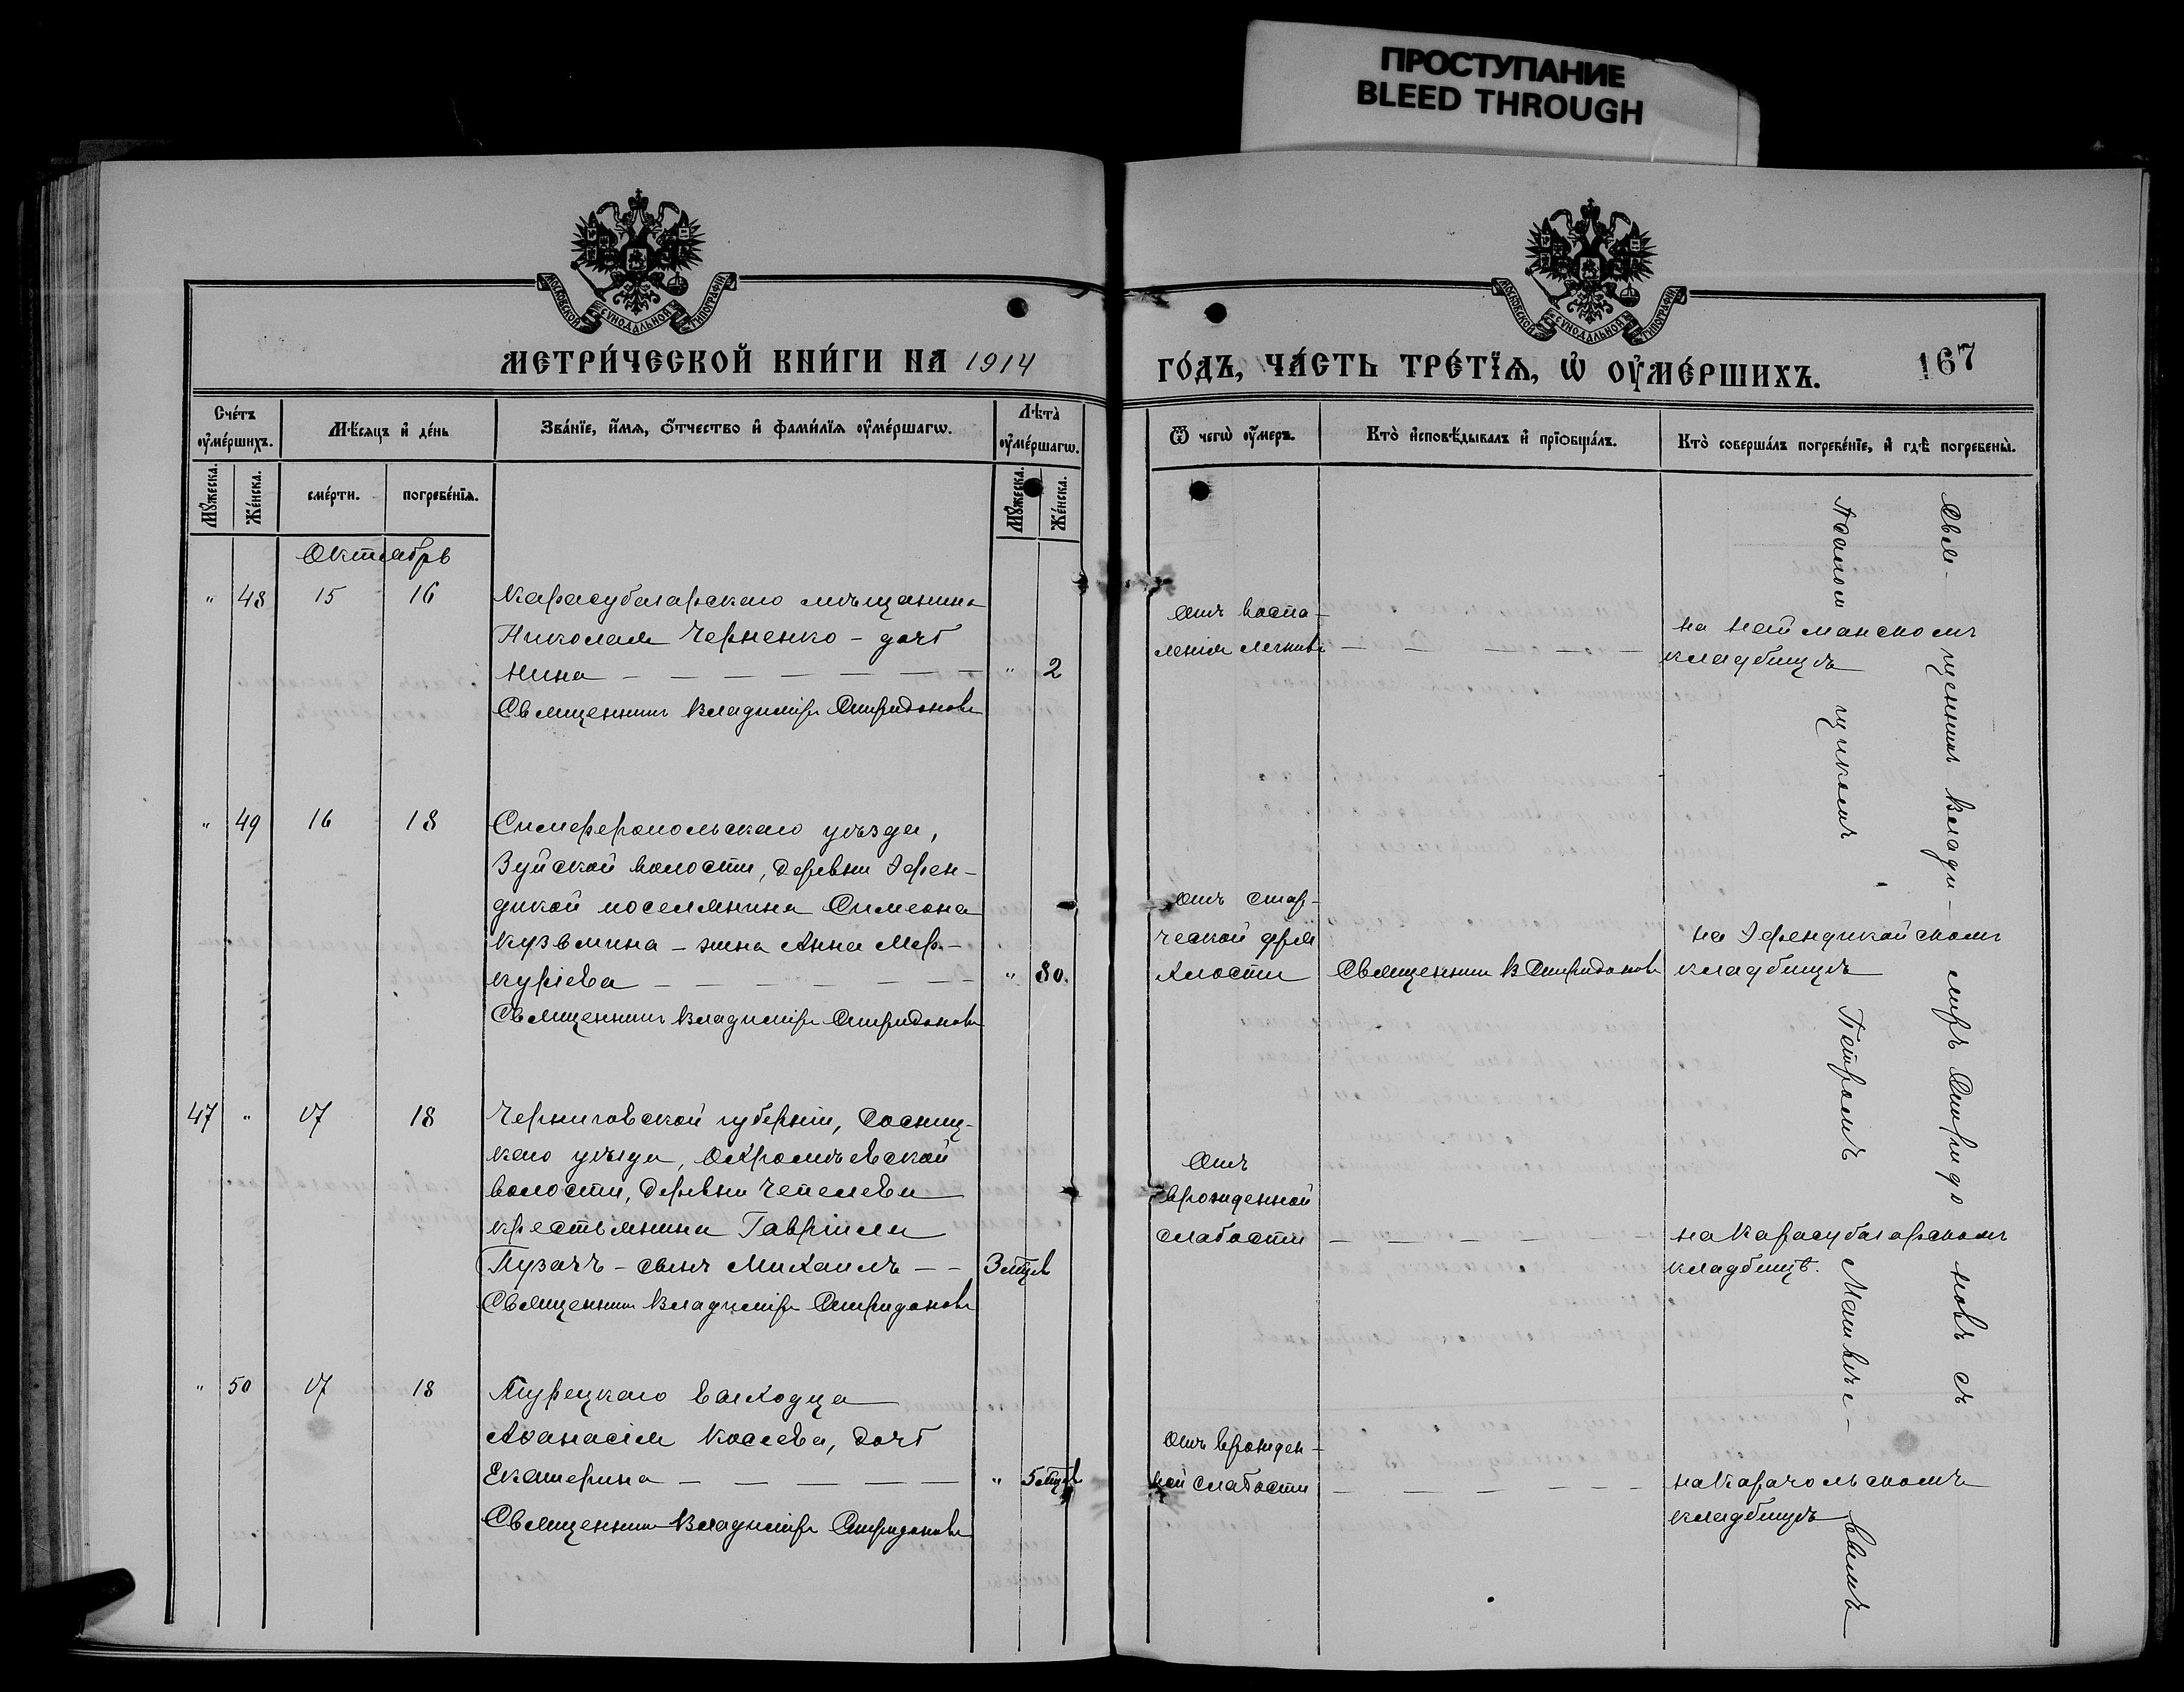 ПРОСТУПАНИЕ
BLEED THROUGH
МОСКОВСКОЙ СѴНОДАЛЬНОЙ ТИПОГРАФІИ
МОСКОВСКОЙ СѴНОДАЛЬНОЙ ТИПОГРАФІИ
МЕТРИ́ЧЕСКОЙ КНИ́ГИ НА 1914
ГО́ДЪ, ЧА́СТЬ ТРЕ́ТЇѦ, Ѡ҆ ОУ҆МЕ́РШИХЪ.
167
Сче́тъ оу҆ме́ршихъ.
Мꙋ́жеска.
Же́нска.
Мѣ́сяцъ и҆ де́нь
сме́рти.
погребе́нїѧ.
Зва́нїе, и҆́мѧ, ѻ҆́тчество и҆ фами́лїѧ оу҆ме́ршагѡ.
Лѣ́та оу҆ме́ршагѡ.
Мꙋ́жеска.
Же́нска.
Ѿ чегѡ̀ оу҆́меръ.
Кто̀ и҆сповѣ́дывалъ и҆ прїѡбща́лъ.
Кто̀ соверша́лъ погребе́нїе, и҆ гдѣ̀ погребены̀.
Октябрь
" 48 15 16
Карасубазарскаго мѣщанина
Николая Черненко - дочь
Нина " 2
Священникъ Владиміръ Спиридоновъ
Отъ воспа-
ленія легкихъ
на Найманскомъ
кладбищѣ
" 49 16 18
Симферопольскаго уѣзда,
Зуйской волости, деревни Эфен-
дикой поселянина Симеона
Кузьмина - жена Анна Мер-
куріева " 80.
Священникъ Владиміръ Спиридоновъ
отъ стар-
ческой дря
хлости
Священникъ В Спиридоновъ
на Эфендикойскомъ
кладбищѣ
47 " 17 18
Черниговской губерніи, Сосниц-
каго уѣзда, Охромѣевской
волости, деревни Чепелева
крестьянина Гавріила
Пузачъ - сынъ Михаилъ 3 мцев
Священникъ Владиміръ Спиридоновъ
Отъ
врожденной
слабости
на Карасубазарскомъ
кладбищѣ.
" 50 17 18
Турецкаго выходца
Аѳанасія Косіева, дочь
Екатерина " 5 мцев
Священникъ Владиміръ Спиридоновъ
Отъ врожден-
ной слабости
на Карачольскомъ
кладбищѣ
Свя-щенникъ Влади-міръ Спиридоновъ съ
Псаломщикомъ Петромъ Матвѣе-вымъ